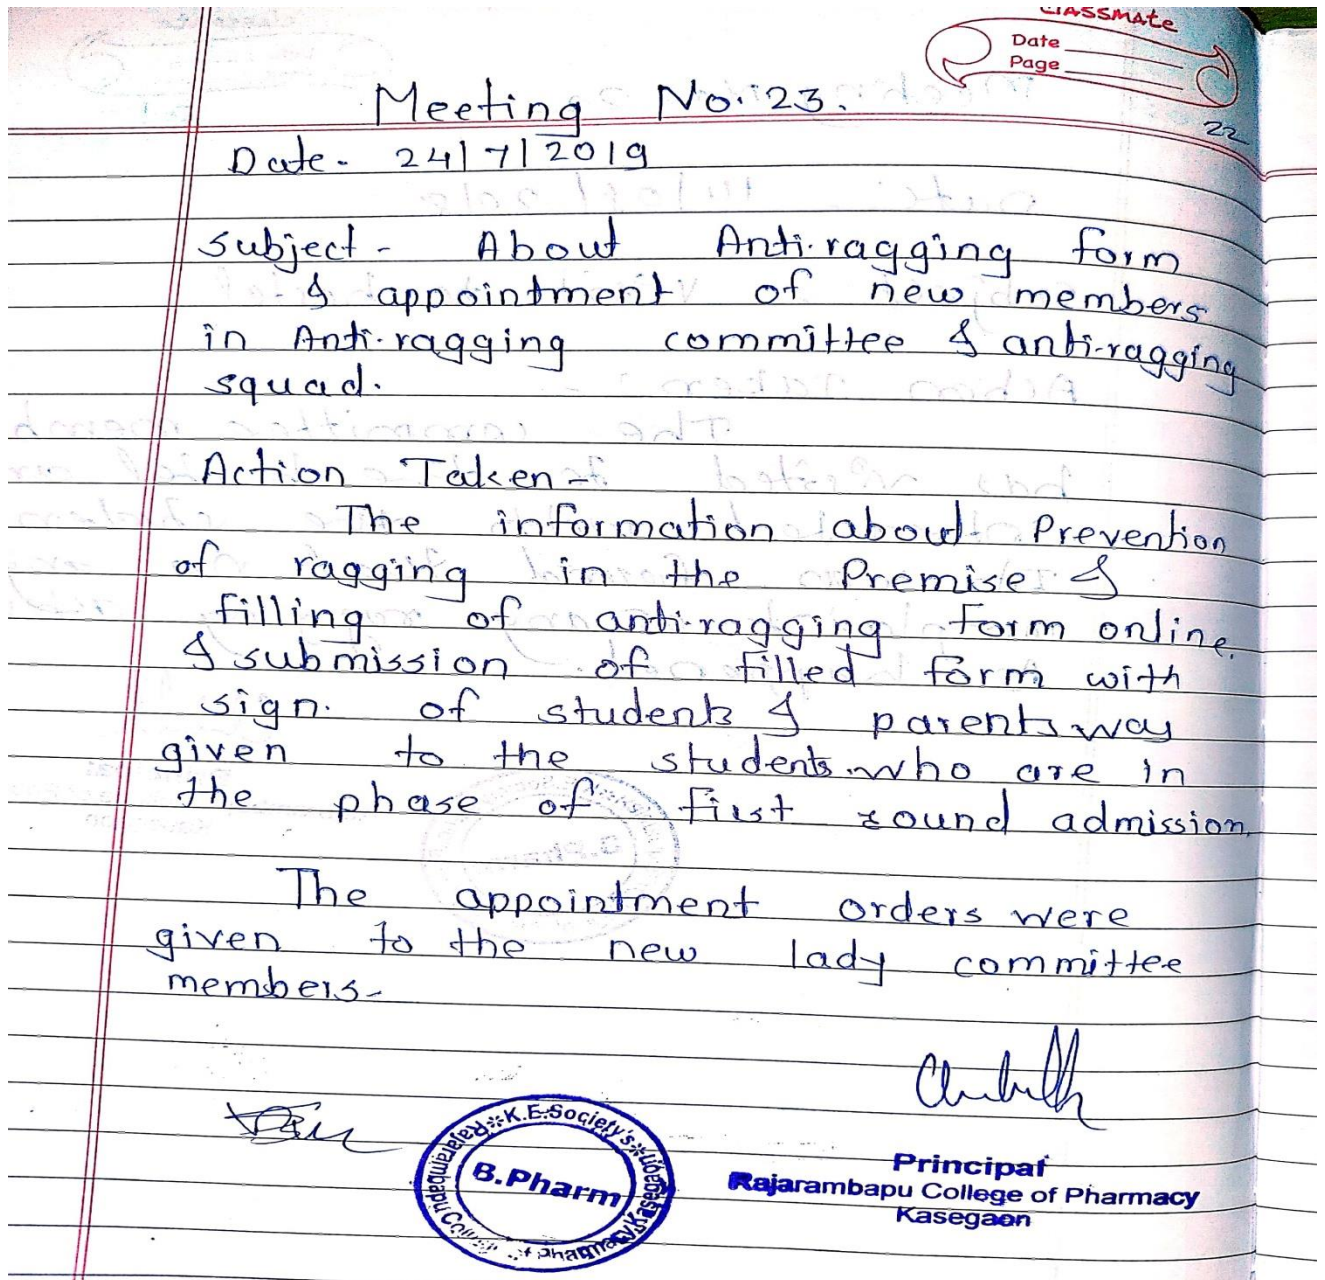 classmate
Date
Page
22
Meeting No. 23.
Date- 24/7/2019
Subject - About Anti-ragging form
& appointment of new members
in Anti-ragging committee & anti-ragging
squad.
Action Taken -
The information about Prevention
of ragging in the Premise &
filling of anti-ragging form online.
& submission of filled form with
sign. of students & parents was
given to the students who are in
the phase of first round admission.
The appointment orders were
given to the new lady committee
members-
K.E.Society's
Rajarambapu College of Pharmacy Kasegaon
B.Pharm
Principal
Rajarambapu College of Pharmacy
Kasegaon